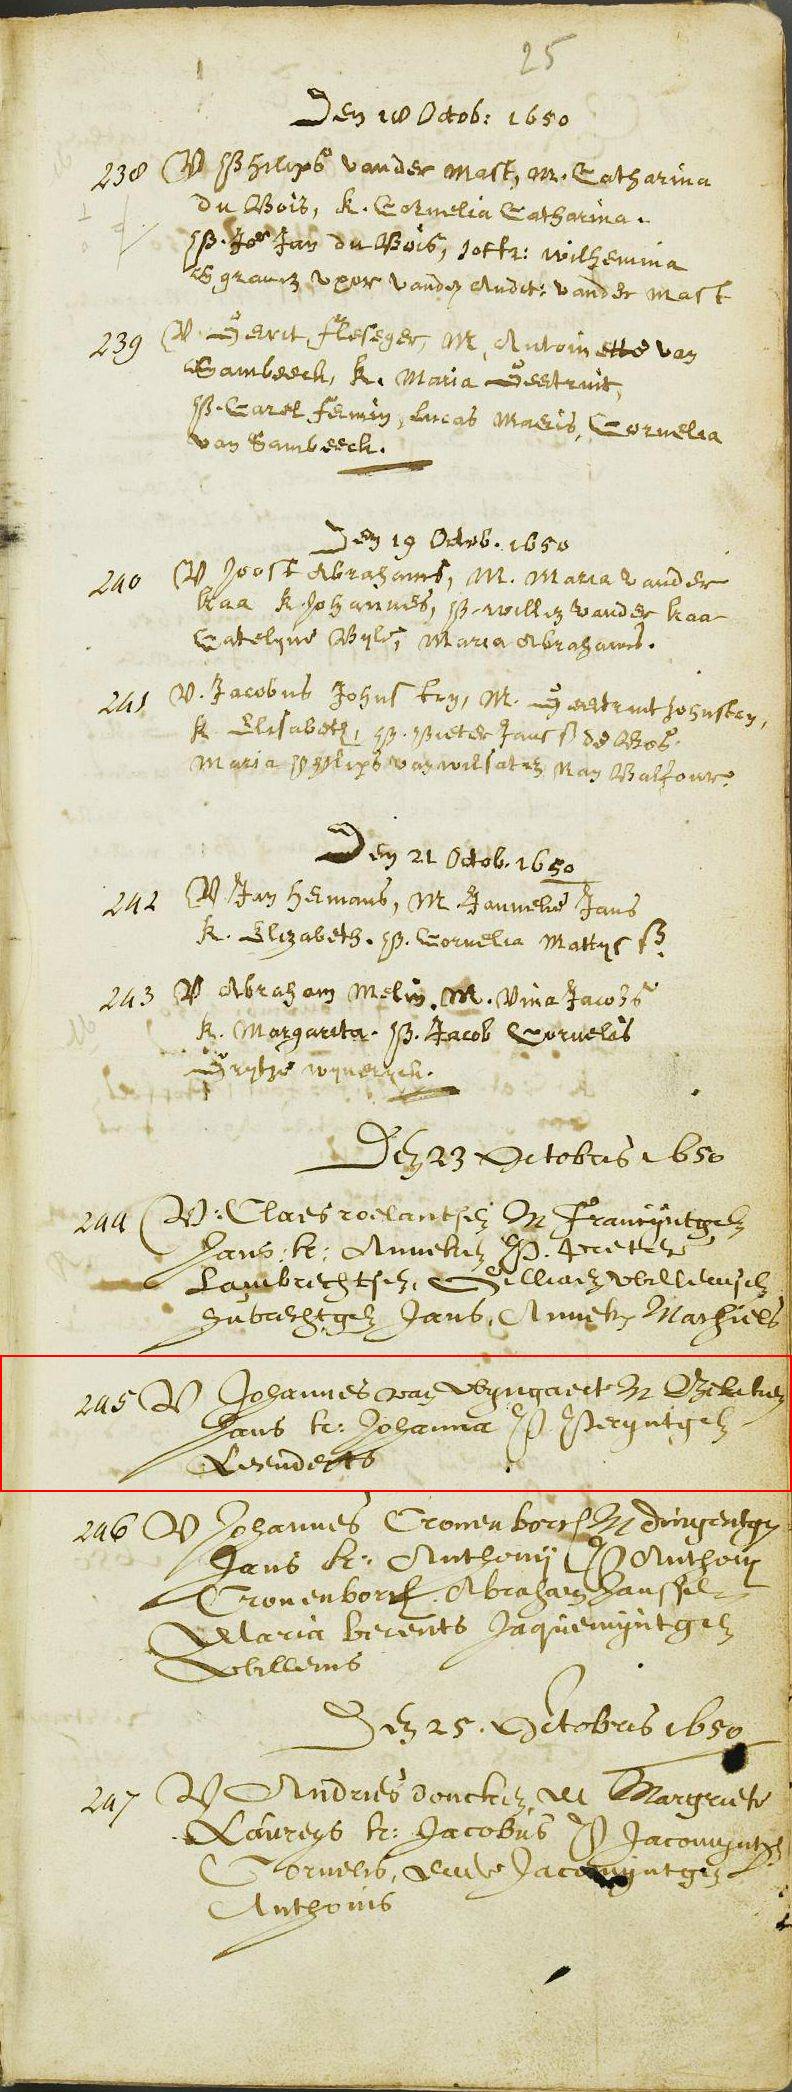 25
Den 18 Octob: 1650
238 V Philips vander Mast, M. Catharina
du Bois, k. Cornelia Catharina.
P. Jor Jan du Bois, Joffr: Wilhemina
s'graven uxor vanden Audit: vander Mast
239 V. Gerrit fleseger, M. Antoinette van
Sambeeck, k. Maria Geertruit,
P. Carel femin, Lucas Maeris, Cornelia
van Sambeeck.
Den 19 Octob. 1650
240 V Joost Abrahams, M. Maria vander
kaa k Johannes, P. willem vander kaa
Catelyne Byls, Maria Abrahams.
241 V. Jacobus Johnston, M. Geertruit Johnston,
k Elisabeth, P. Pieter Jans de Bos
Maria Philips van
242 V Jan Hermans, M Janneke Jans
Den 21 Octob. 1650
k. Elizabeth. P. Cornelia Mattys
243 V Abraham Melin. M. Vina Jacobs
k. Margarita. P. Jacob Cornelis
Grytje
Den 23 Octobris 1650
244 V: Claes roelantsen M Francyntgen
Jans: k: Anneken P. Pieter
Lambrechtsen, Gilliaen Willemsen
Hubrechtgen Jans, Anneken Machiels
245 V Johannes van Wyngaert M
Jans k: Johanna P Peryntgen
Leenderts
246 V Johannes Cronenborch M dingentgen
Jans k: Anthony P Anthony
Cronenborch. Abraham Hanssen
Maria berents Jaquemyntgen
Willems
Den 25. Octobris 1650
247 V Andries doncker M Margriete
Loureys k: Jacobus P Jacomyntgen
Cornelis, ende Jacomyntgen
Anthonis